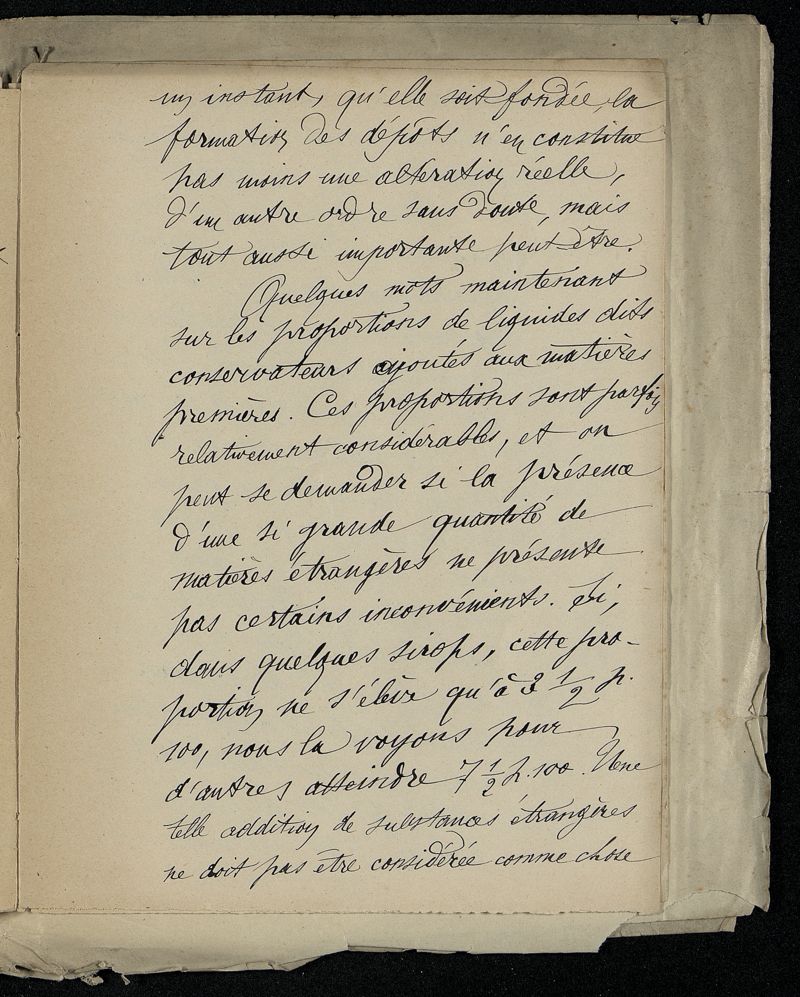 un instant, qu'elle soit fondée, la
formation des dépôts n'en constitue
pas moins une altération réelle,
d'un autre ordre sans doute, mais
tout aussi importante peut-être.
Quelques mots maintenant
sur les proportions de liquides dits
conservateurs ajoutés aux matières
premières. Ces proportions sont parfois
relativement considérables, et on
peut se demander si la présence
d'une si grande quantité de
matières étrangères ne présente
pas certains inconvénients. Si,
dans quelques sirops, cette pro-
portion ne s'élève qu'à 3 1/2 p.
100, nous la voyons pour
d'autres atteindre 7 1/2 p. 100. Une
telle addition de substances étrangères
ne doit pas être considérée comme chose